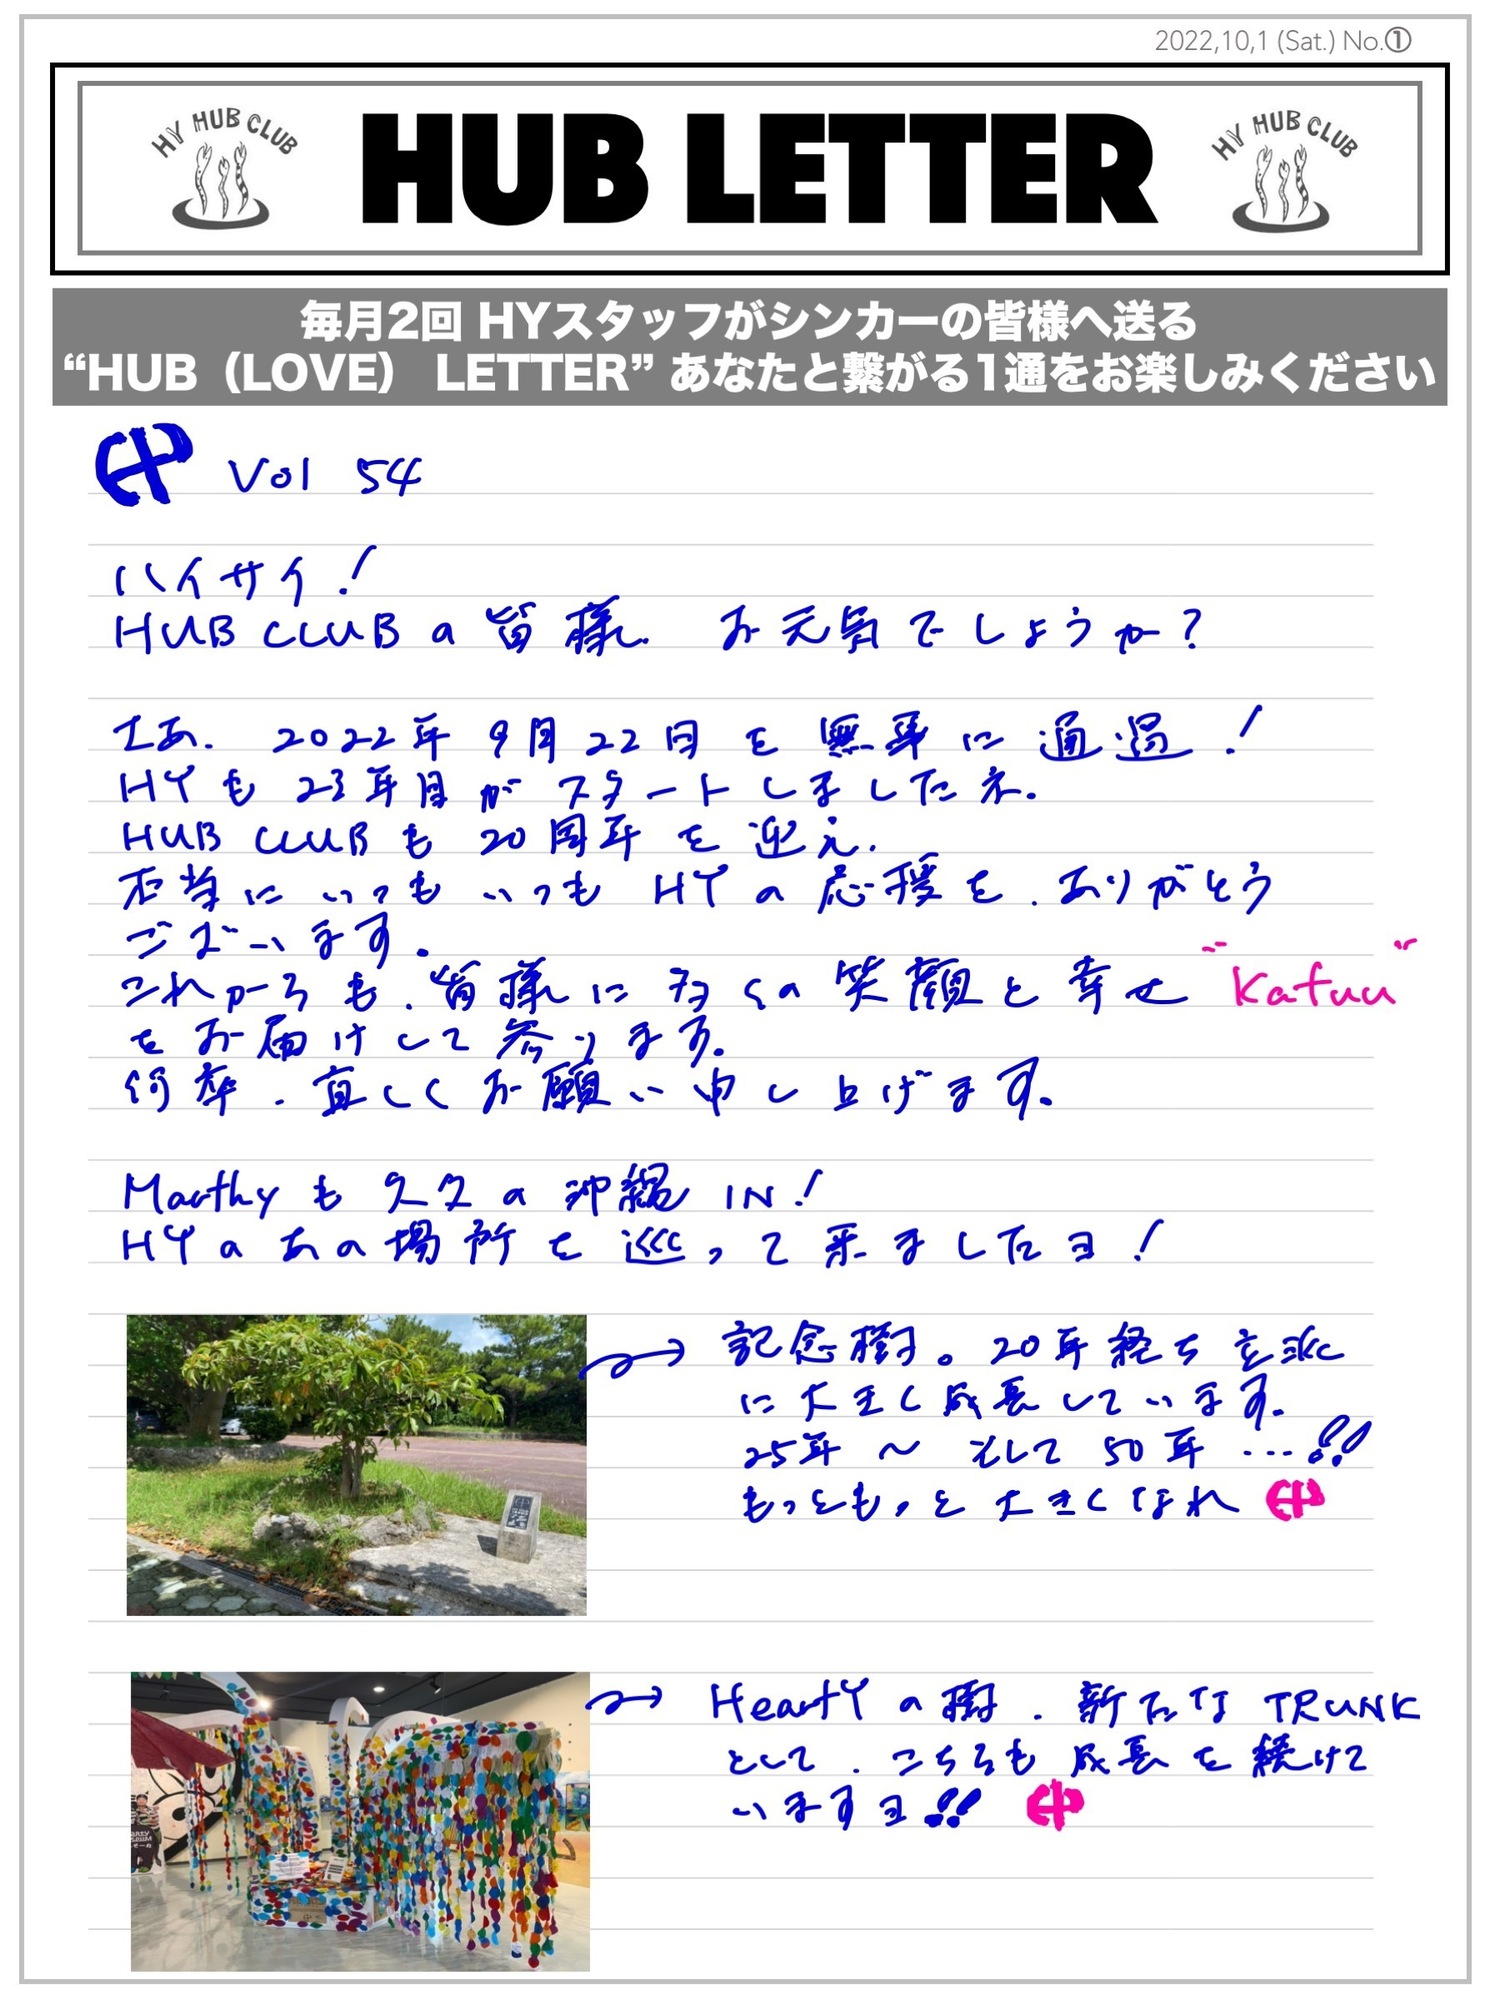 2022,10,1 (Sat.) No.①
HY HUB CLUB
HUB LETTER
HY HUB CLUB
毎月2回 HYスタッフがシンカーの皆様へ送る
“HUB（LOVE） LETTER” あなたと繋がる1通をお楽しみください
Vol 54
ハイサイ！
HUB CLUBの皆様、お元気でしょうか？
さあ、2022年9月22日を無事に通過！
HYも23年目がスタートしましたネ。
HUB CLUBも20周年を迎え、
本当にいつもいつもHYの応援を、ありがとう
ございます。
これからも、皆様に多くの笑顔と幸せ“Kafuu”
をお届けして参ります。
何卒、宜しくお願い申し上げます。
Marthyも久々の沖縄IN！
HYのあの場所を巡って来ましたヨ！
記念樹。20年経ち立派
に大きく成長しています。
25年〜そして50年…!!
もっともっと大きくなれ
HeartYの樹、新たなTRUNK
として、こちらも成長を続けて
いますヨ!!